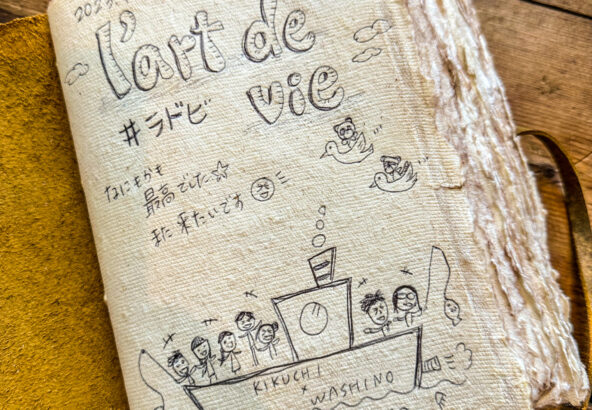 l'art de
vie
#ラドビ
なにもかも
最高でした☆
また来たいです
KIKUCHI
×
WASHINO